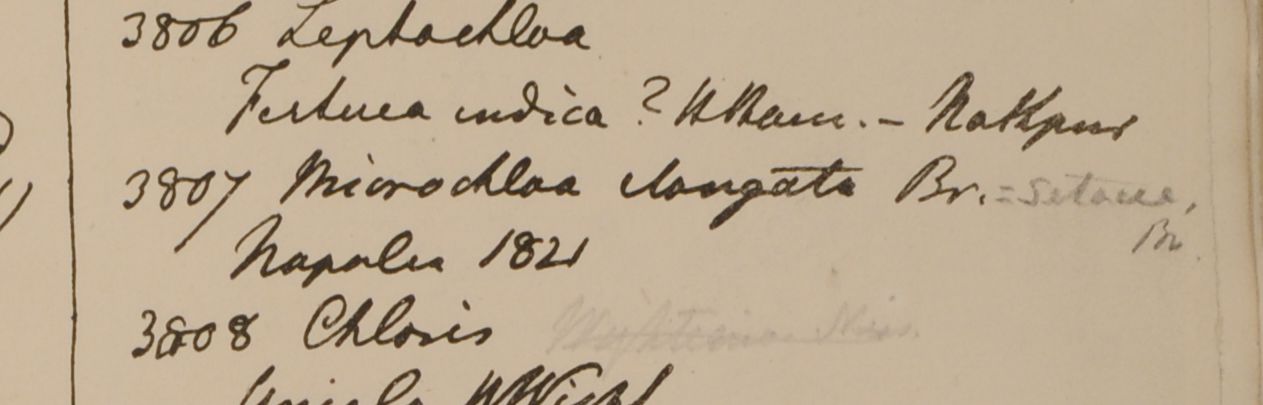 3806 Leptochloa
Festuca indica? HHam. - Nathpur
3807 Microchloa elongata Br. = setacea,
Br
Napalia 1821
3808 Chloris
HWight